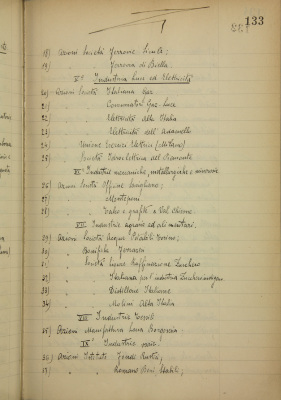 133
18) Azioni Società Ferrovie Sicule;
19) " " Ferrovia di Biella.
V° Industria Luce ed Elettricità
20) Azioni Società Italiana Gaz
21) " " Consumatori Gaz-Luce
22) " " Elettricità Alta Italia
23) " " Elettricità dell' Adamello
24) " Unione Esercizi Elettrici (Milano)
25) " Società Idroelettrica del Piemonte
VI° Industrie meccaniche, metallurgiche e minerarie
26) Azioni Società Officine Savigliano;
27) " " Monteponi
28) " " Talco e grafite Val Chisone.
VII° Industrie agrarie ed alimentari.
29) Azioni Società Acque Potabili Torino;
30) " Bonifiche Ferraresi
31) " Società Ligure Raffinazione Zucchero
32) " " Italiana per l'industria Zuccheri
33) " " Distillerie Italiane
34) " " Molini Alta Italia
VIII° Industrie Tessili
35) Azioni Manifattura Lana Borgosesia;
IX° Industrie varie.
36) Azioni Istituto Fondi Rustici;
37) " " Romano Beni Stabili;